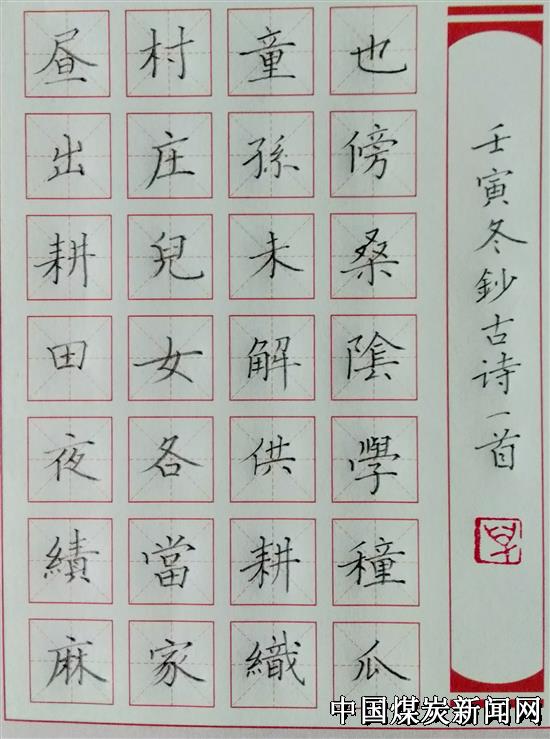 昼出耕田夜績麻
村庄兒女各當家
童孫未解供耕織
也傍桑陰學穜瓜
壬寅冬鈔古诗一首
中国煤炭新闻网